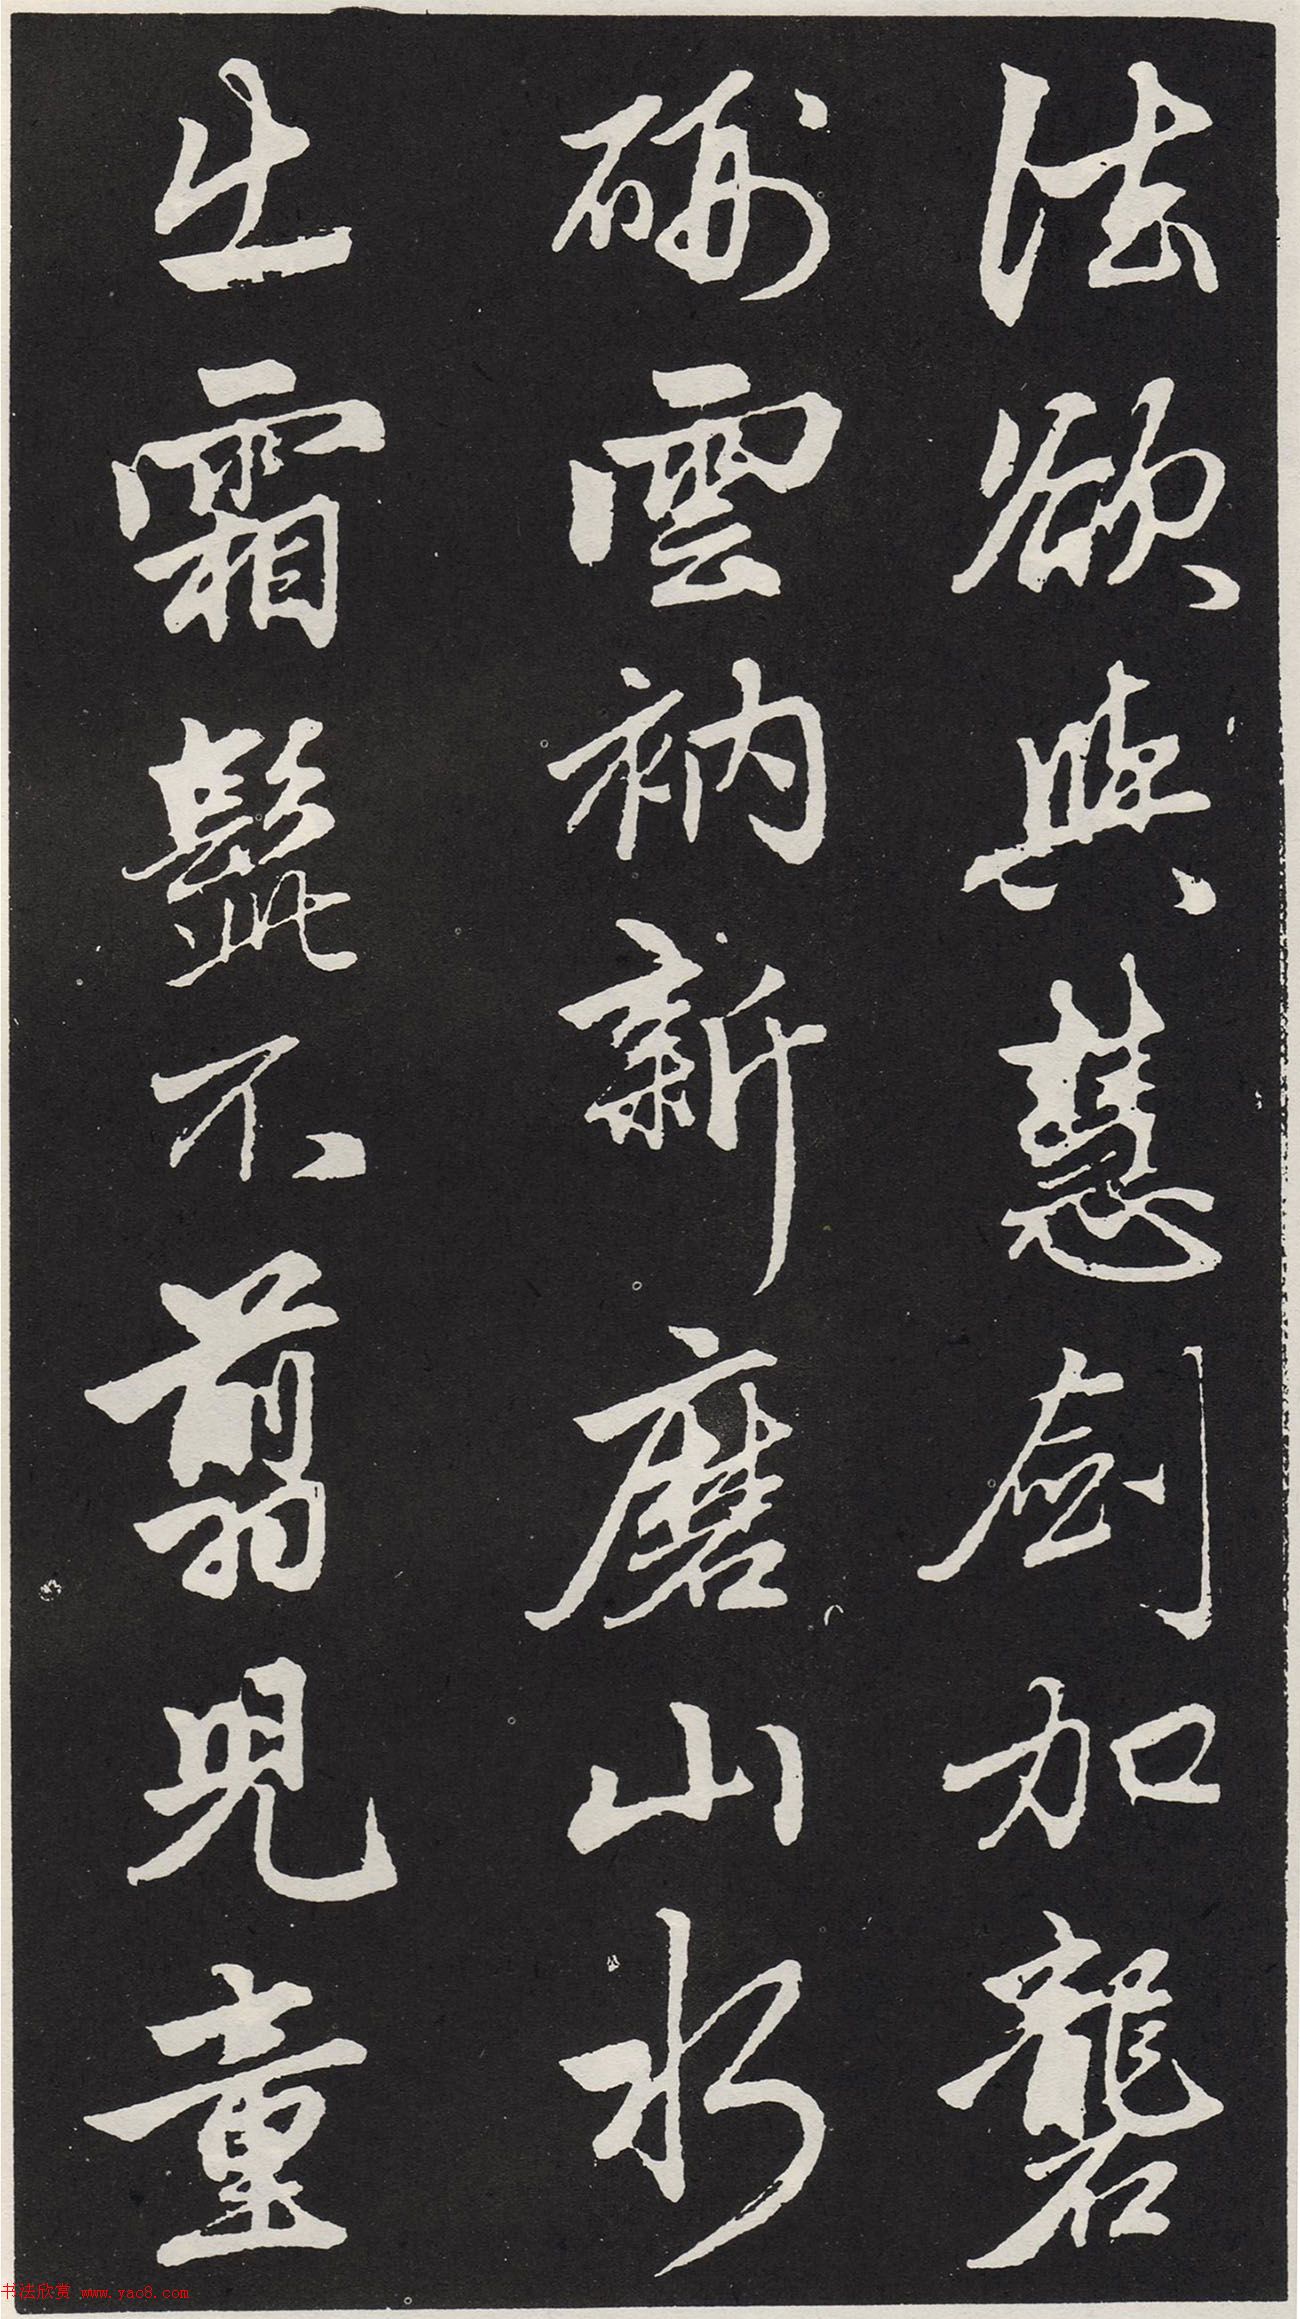 法欲與慧劍加礱
硎雲衲新磨山水
出霜髭不翦兒童
书法欣赏 www.yac8.com